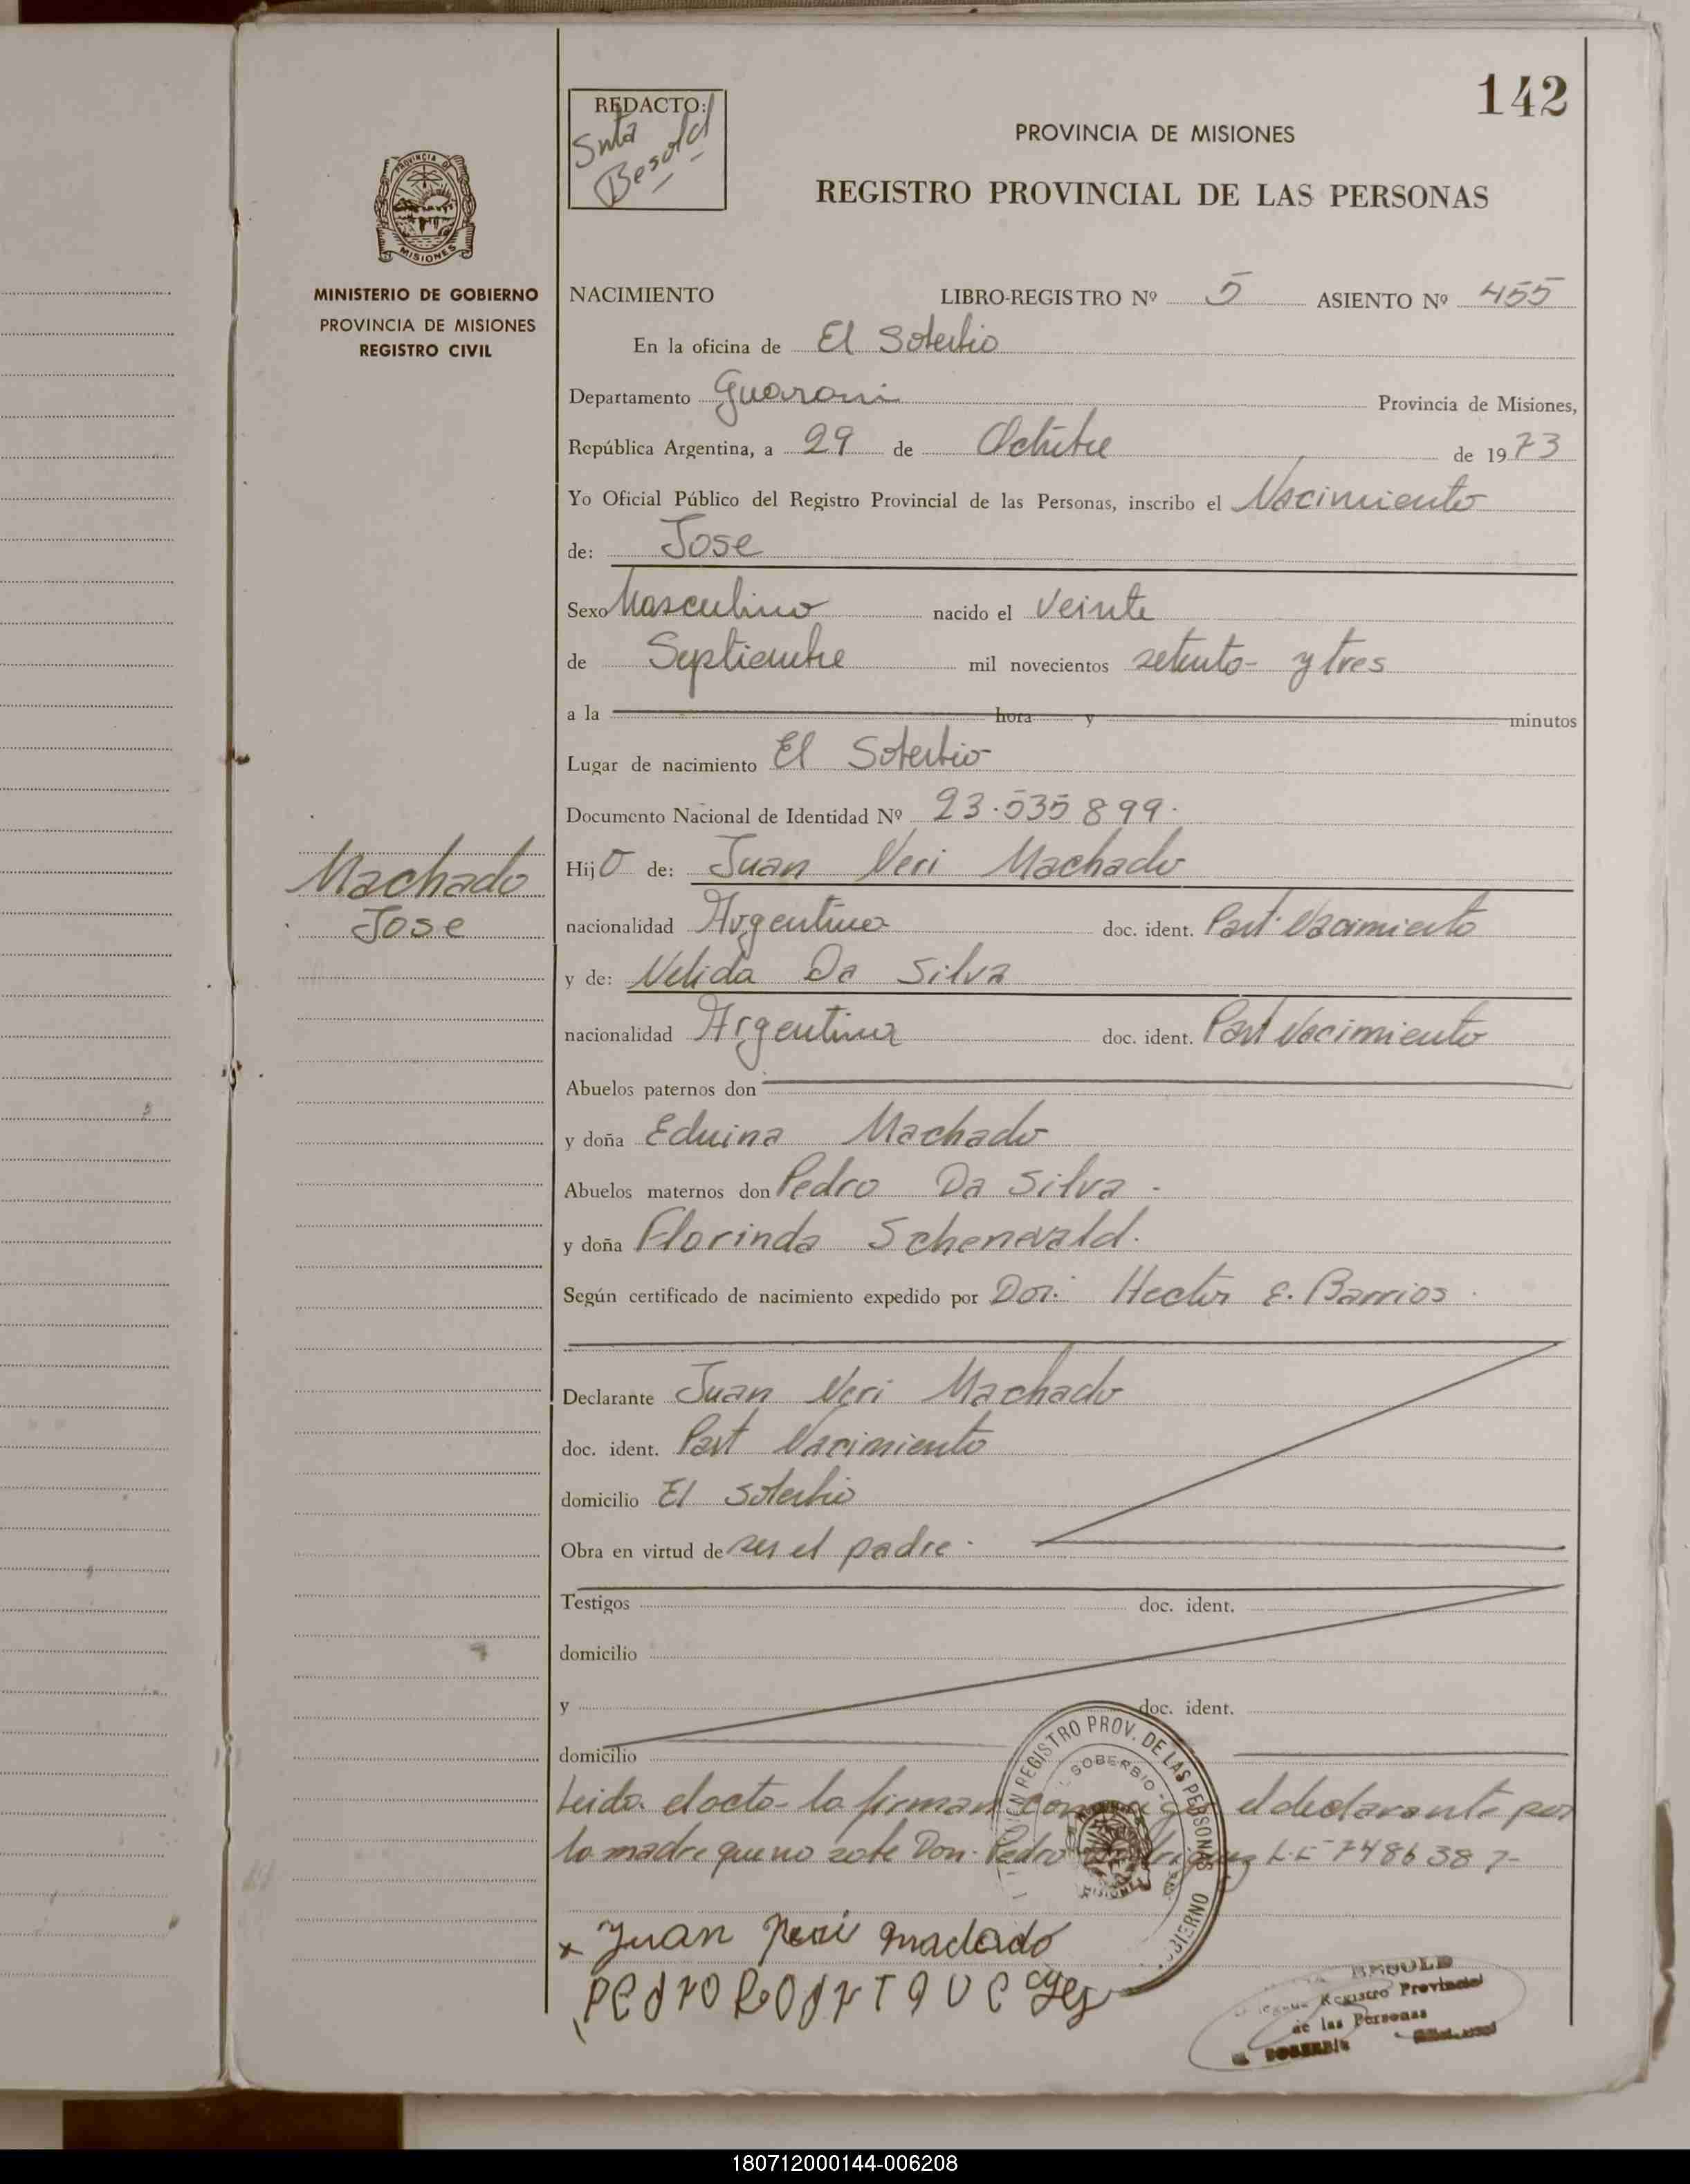 142
REDACTO:
Snta
Besold
PROVINCIA DE MISIONES
REGISTRO PROVINCIAL DE LAS PERSONAS
PROVINCIA DE
MISIONES
MINISTERIO DE GOBIERNO
PROVINCIA DE MISIONES
REGISTRO CIVIL
NACIMIENTO LIBRO-REGISTRO Nº 5 ASIENTO Nº 455
En la oficina de El Soberbio
Departamento Guarani Provincia de Misiones,
República Argentina, a 29 de Octubre de 1973
Yo Oficial Público del Registro Provincial de las Personas, inscribo el Nacimiento
de: Jose
Sexo Masculino nacido el Veinte
de Septiembre mil novecientos setenta y tres
a la hora y minutos
Lugar de nacimiento El Soberbio
Documento Nacional de Identidad Nº 23.535 899.
Hijo de: Juan Neri Machado
Machado
Jose
nacionalidad Argentino doc. ident. Part. Nacimiento
y de: Nelida Da Silva
nacionalidad Argentina doc. ident. Part Nacimiento
Abuelos paternos don
y doña Eduina Machado
Abuelos maternos don Pedro Da Silva.
y doña Florinda Schenevald.
Según certificado de nacimiento expedido por Dor. Hector E. Barrios
Declarante Juan Neri Machado
doc. ident. Part Nacimiento
domicilio El Soberbio
Obra en virtud de ser el padre.
Testigos doc. ident.
domicilio
y doc. ident.
domicilio
REGISTRO PROV. DE LAS PERSONAS
SOBERBIO
MISIONES
Leida el acto lo firman el declarante por
la madre que no sabe Don. Pedro L.E 7486387-
x Juan Neri Machado
Pedro Rodriguez
BESOLD
Registro Provincial
de las Personas
SOBERBIO
180712000144-006208